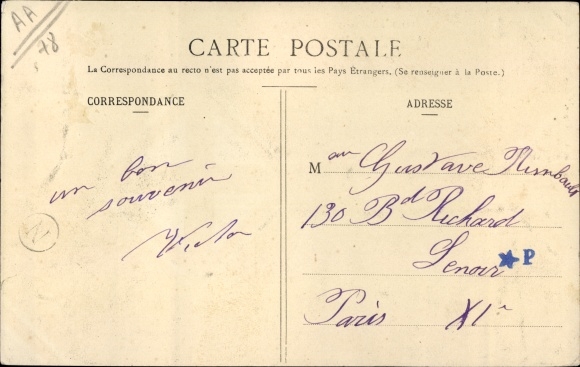 AA
78
CARTE POSTALE
La Correspondance au recto n'est pas acceptée par tous les Pays Étrangers. (Se renseigner à la Poste.)
CORRESPONDANCE
un bon
souvenir
Victor
N
ADRESSE
M Gustave Rimbault
130 Bd Richard
Lenoir
P
Paris XIe